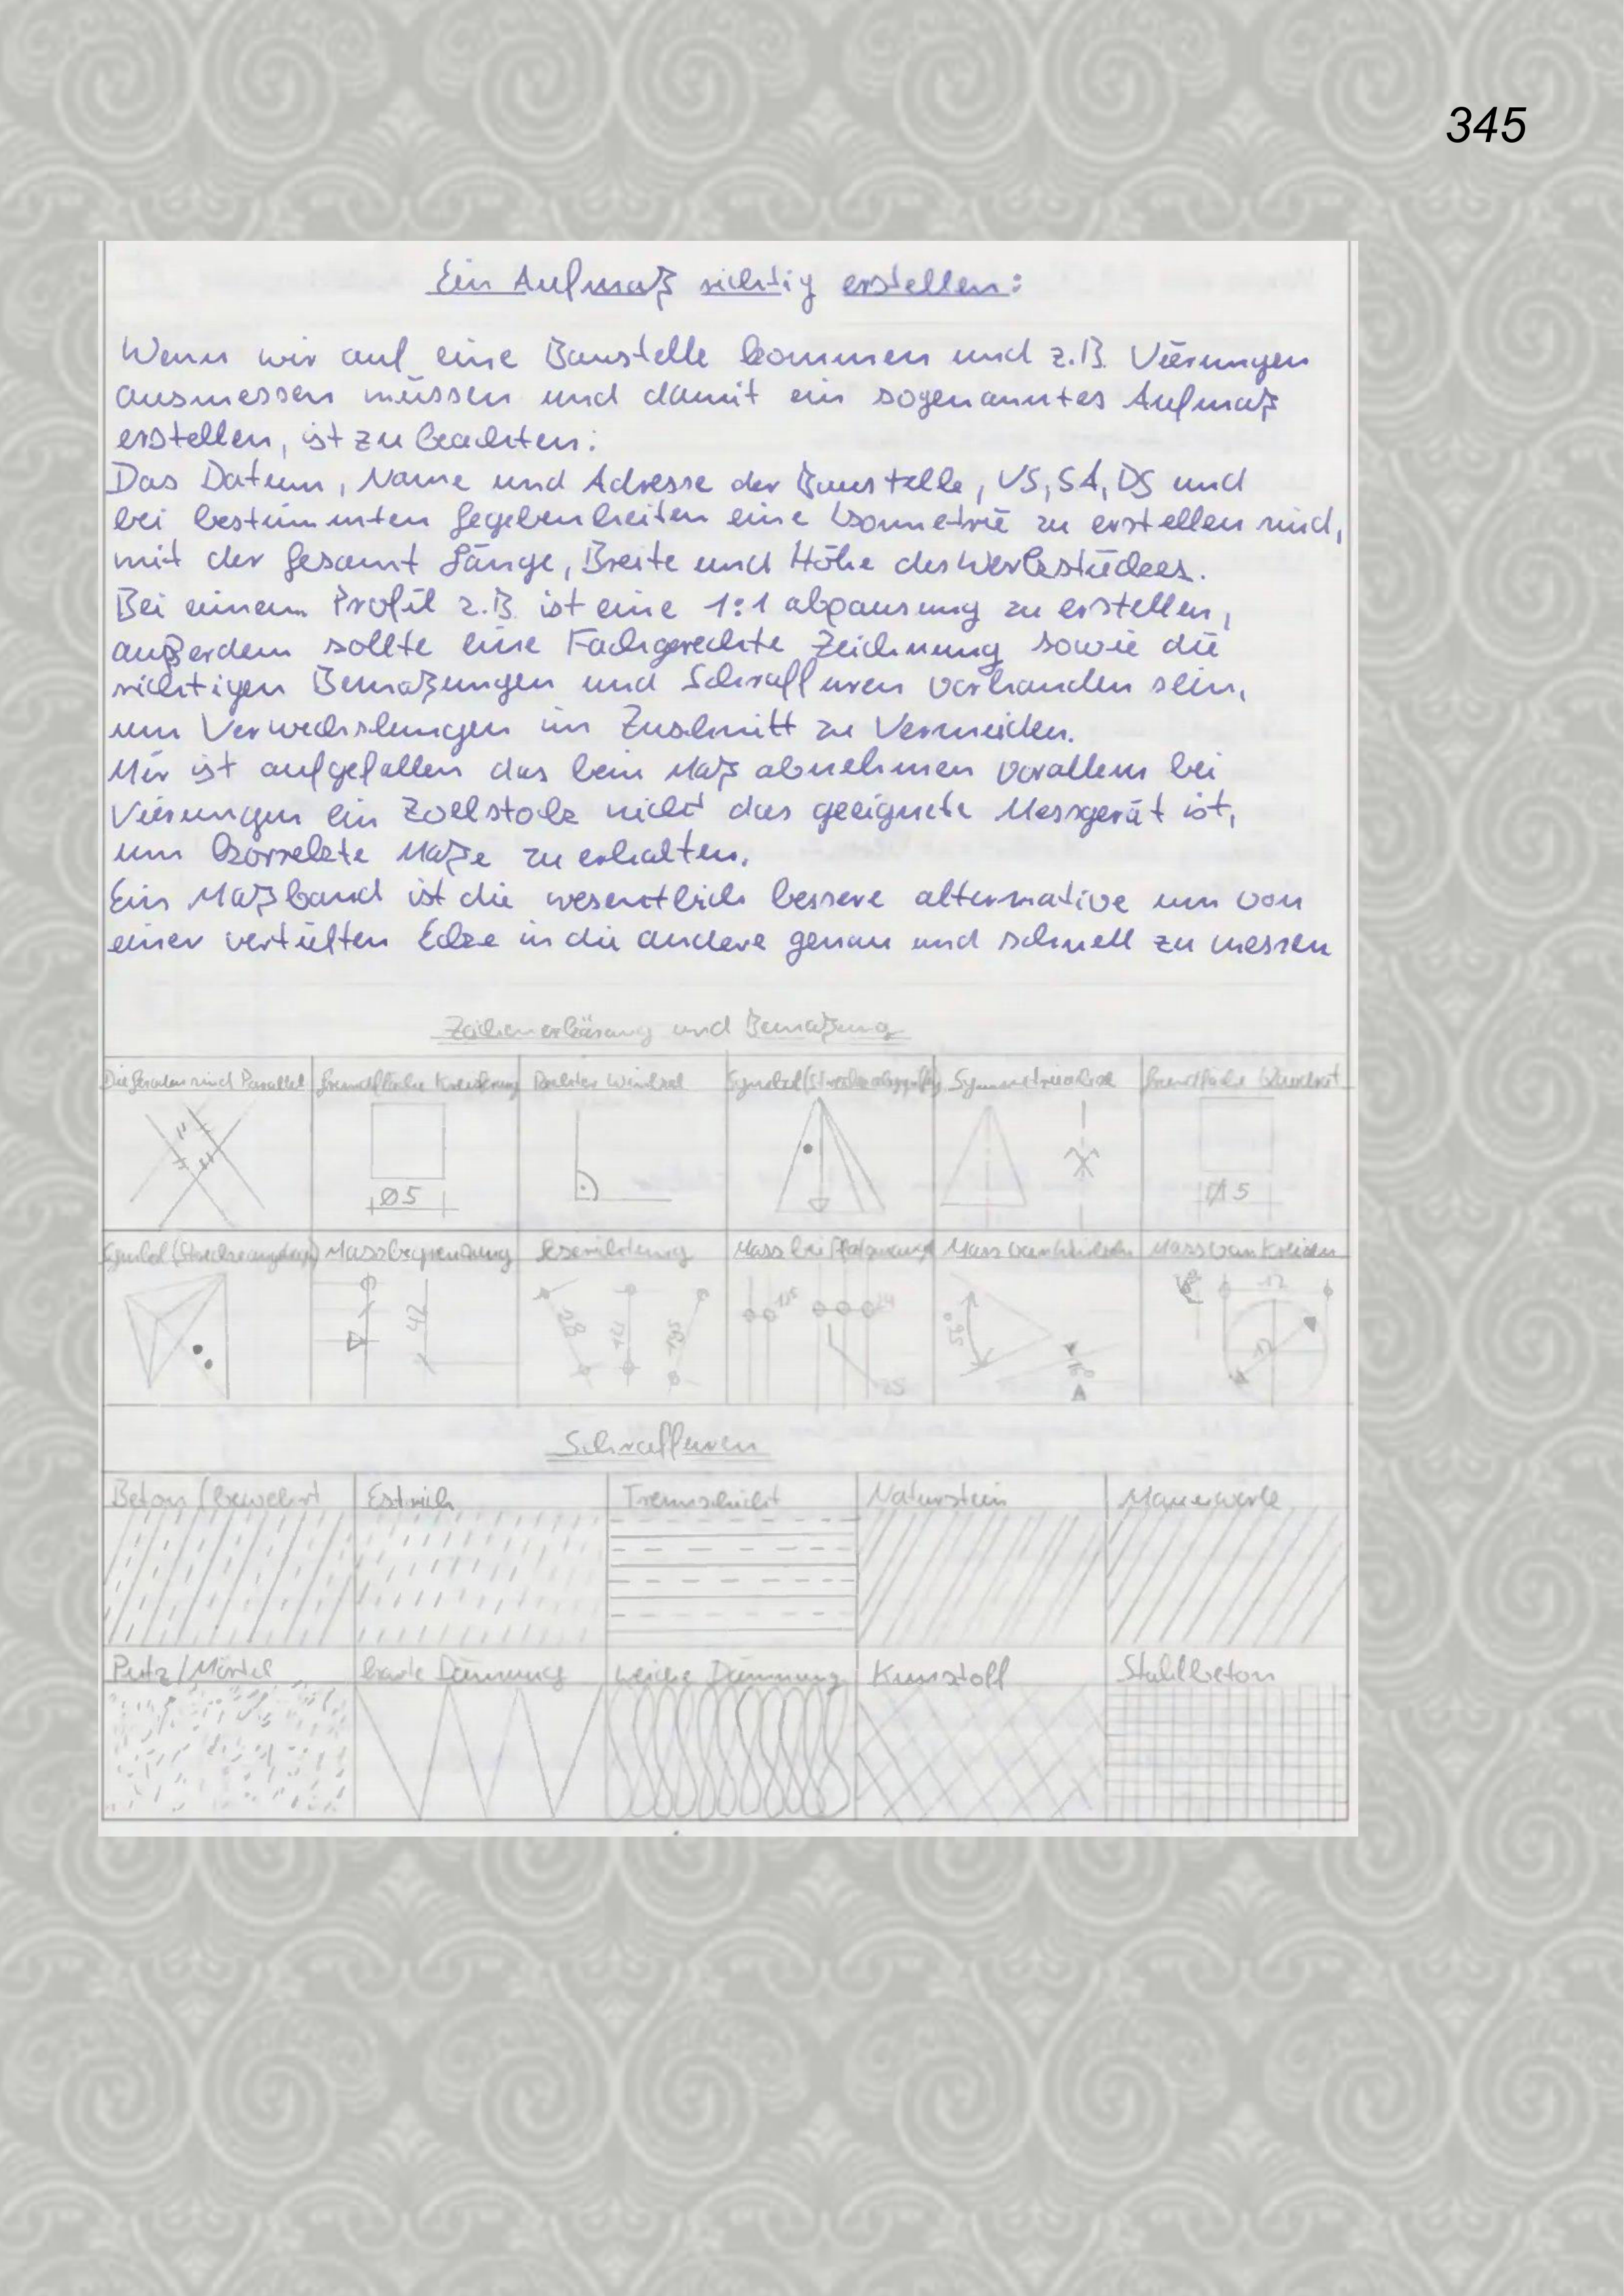 345
Ein Aufmaß richtig erstellen:
Wenn wir auf eine Baustelle kommen und z.B. Vierungen
ausmessen müssen und damit ein sogenanntes Aufmaß
erstellen, ist zu beachten:
Das Datum, Name und Adresse der Baustelle, VS, SA, DS und
bei bestimmten Gegebenheiten eine Isometrie zu erstellen sind,
mit der Gesamt Länge, Breite und Höhe des Werkstückes.
Bei einem Profil z.B. ist eine 1:1 abpausung zu erstellen,
außerdem sollte eine Fachgerechte Zeichnung sowie die
richtigen Bemaßungen und Schraffuren vorhanden sein,
um Verwechslungen im Zuschnitt zu Vermeiden.
Mir ist aufgefallen das beim Maß abnehmen vorallem bei
Vierungen ein Zollstock nicht das geeignete Messgerät ist,
um korrekte Maße zu erhalten.
Ein Maßband ist die wesentlich bessere alternative um von
einer vertieften Ecke in die andere genau und schnell zu messen
Zeichenerklärung und Bemaßung
Die Geraden sind Parallel Grundfläche Rechter Winkel Symbol Symmetrieachse Grundfläche Quadrat
Ø5 5
Symbol Massbegrenzung Mass bei Mass von Winkeln Mass von Kreisen
42 12
A 12
Schraffuren
Beton/bewehrt Estrich Trennschicht Naturstein Mauerwerk
Putz/Mörtel harte Dämmung weiche Dämmung Kunstoff Stahlbeton